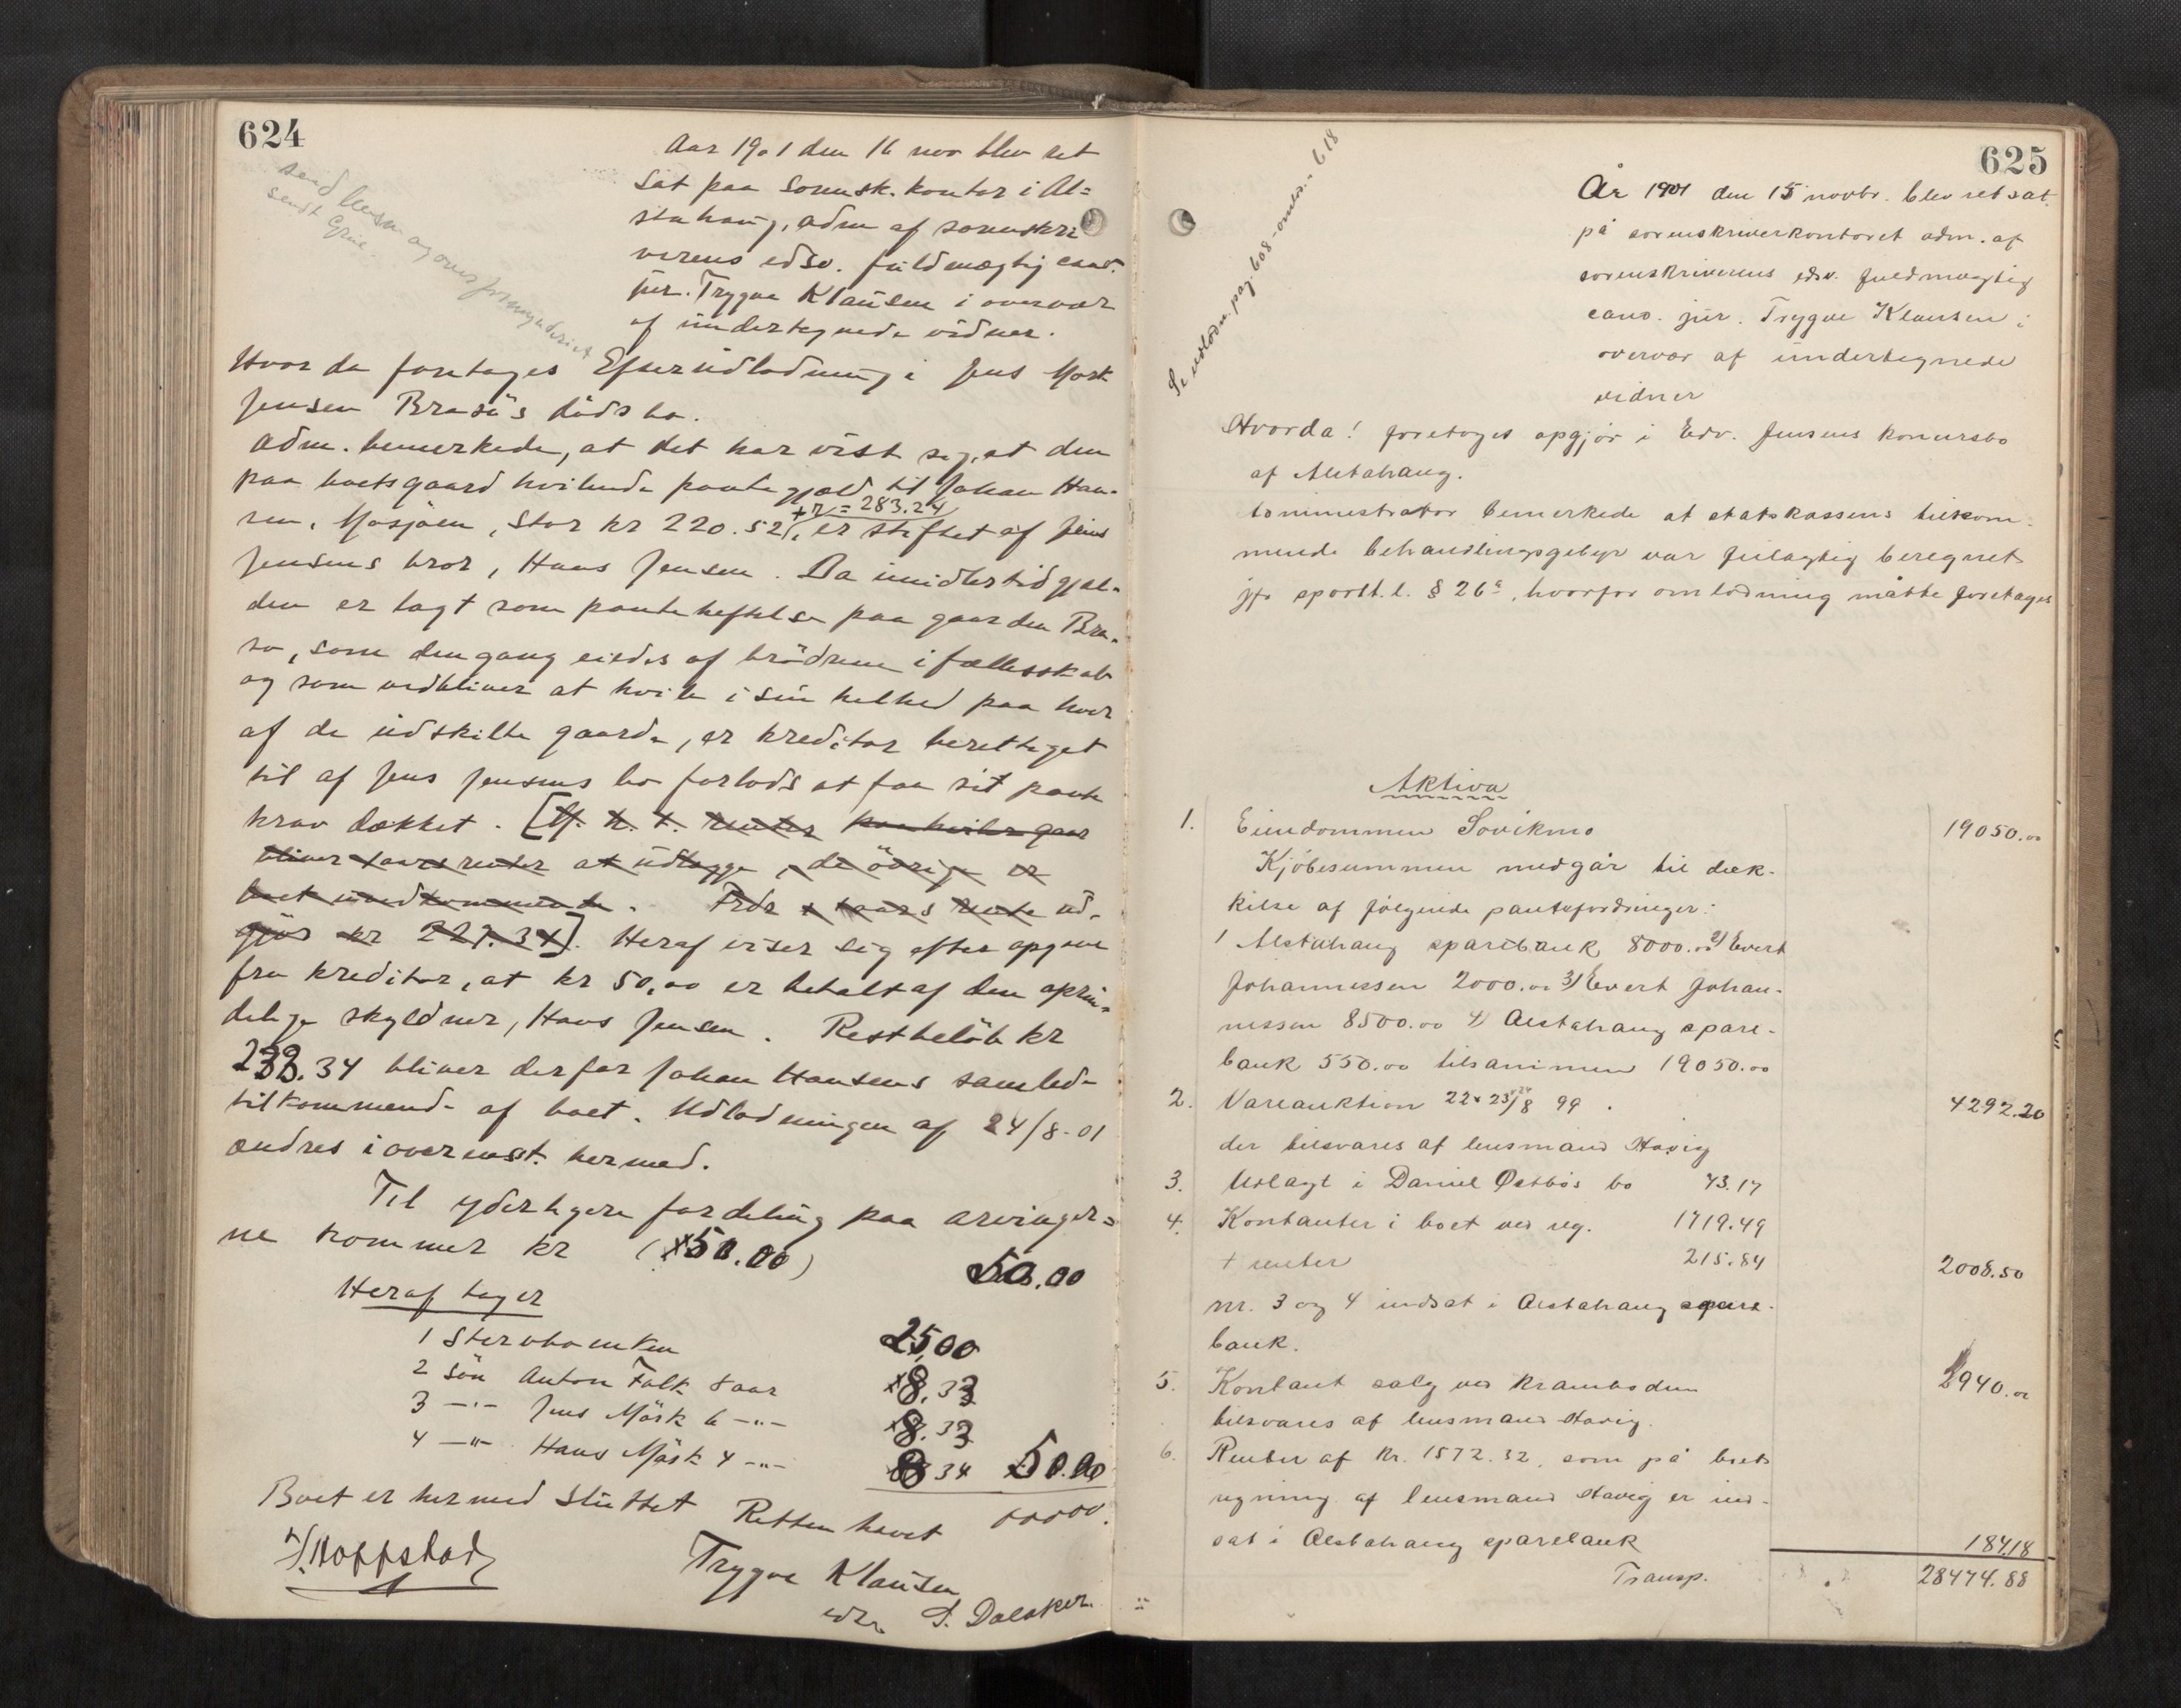 624
Aar 1901 den 16 nov blev ret
sat paa sorensk. kontor i Al=
stahaug, adm af sorenskri
verens edsv. fuldmægtig cand.
jur. Trygve Klausen i overvær
af undertegnede vidner.
Hvor da foretages Efterudlodning i Jens Mørk
Jensen Brasøs dødsbo.
Adm. bemerkede, at det har vist sig, at den
paa boets gaard hvilende pantegjæld til Johan Han-
sen, Mosjøen, stor kr 220.52, er stiftet af Jens
+ r = 283.24
Jensens bror, Hans Jensen. Da imidlertid gjæl-
den er tagt som pantheftelse paa gaarden Bra-
sø, som dengang eiedes af brødrene i fællesskab
og som vedbliver at hvile i sin helhed paa hver
af de udskilte gaarde, er kreditor berettiget
til af Jens Jensens bo forlods at faa sit pante
krav dækket. [
bliver renter at udlægge, de øvrige er
boet uvedkommende. rente ud-
gjør kr 227.34]. Heraf viser sig efter opgave
fra kreditor, at kr 50,00 er betalt af den oprin-
delige skyldner, Hans Jensen. Restbeløb kr
233.34 bliver derfor Johan Hansens samlede
tilkommende af boet. Udlodningen af 24/8-01
ændres i overenst. hermed.
Til yderligere fordeling paa arvinger=
ne kommer kr (50.00) 50.00
Heraf tager
1 Stervboenken 25,00
2 Søn Anton Falk 8 aar 8.33
3 -"- Jens Mørk 6 -"- 8.33
4 -"- Hans Mørk 4 -"- 8 34 50.00
Boet er hermed sluttet Retten hævet 00000.
Hoppstad
Trygve Klausen
edsv. S. Dalaker
send lensm og overformynderiet
sendt
625
Se udlodn. pag. 608 - omlo.. 618
År 1901 den 15 novbr. blev ret sat
på sorenskriverkontoret adm. af
sorenskriverens edsv. fuldmægtig
cand. jur. Trygve Klausen i
overvær af undertegnede
vidner
Hvorda! foretoges opgjør i Edv. Jensens konkursbo
af Alstahaug.
Administrator bemerkede at statskassens tilkom-
mende behandlingsgebyr var feilagtig beregnet
jfr sportl. l. § 26 a, hvorfor omlodning måtte foretages
Aktiva
1. Eiendommen Søvikmo 19050.00
Kjøbesummen medgår til dæk-
kelse af følgende pantefordringer:
1 Alstahaug sparebank 8000.00 2) Evert
Johannessen 2000.00 3) Evert Johan-
nessen 8500.00 4) Alstahaug spare-
bank 550.00 tilsammen 19050.00
2. Vareauktion 22 & 23/8 99. 4292.20
der tilsvares af lensmand Havig
3. Udlagt i Daniel Østbøs bo 73.17
4. Kontanter i boet ved reg. 1719.49
+ renter 215.84 2008.50
nr. 3 og 4 indsat i Alstahaug spare-
bank.
5. Kontant salg ved krambodens 2940.00
tilsvares af lensmand Havig.
6. Renter af kr. 1572.32, som på boets
regning af lensmand Havig er ind-
sat i Alstahaug sparebank 184.18
Transp. 28474.88